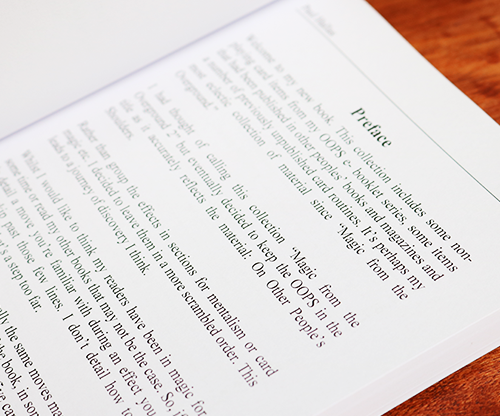 Preface
Welcome to my new book. This collection includes some non-
playing card items from my OOPS e- booklet series, some items
that had been published in other peoples' books and magazines and
a number of previously unpublished card routines. It's perhaps my
most eclectic collection of material since "Magic from the
Overground."
I had thought of calling this collection "Magic from the
Overground 2" but eventually decided to keep the OOPS in the
title as it accurately reflects the material: On Other People's
Shoulders.
Rather than group the effects in sections for mentalism or card
magic etc, I decided to leave them in a more scrambled order. This
leads to a journey of discovery I think.
Whilst I would like to think my readers have been in magic for
some time or read my other books that may not be the case. So, if
detail a move you're familiar with during an effect you
past those few lines. I don't detail how to
a step too far.
the same moves ma
the book, in som